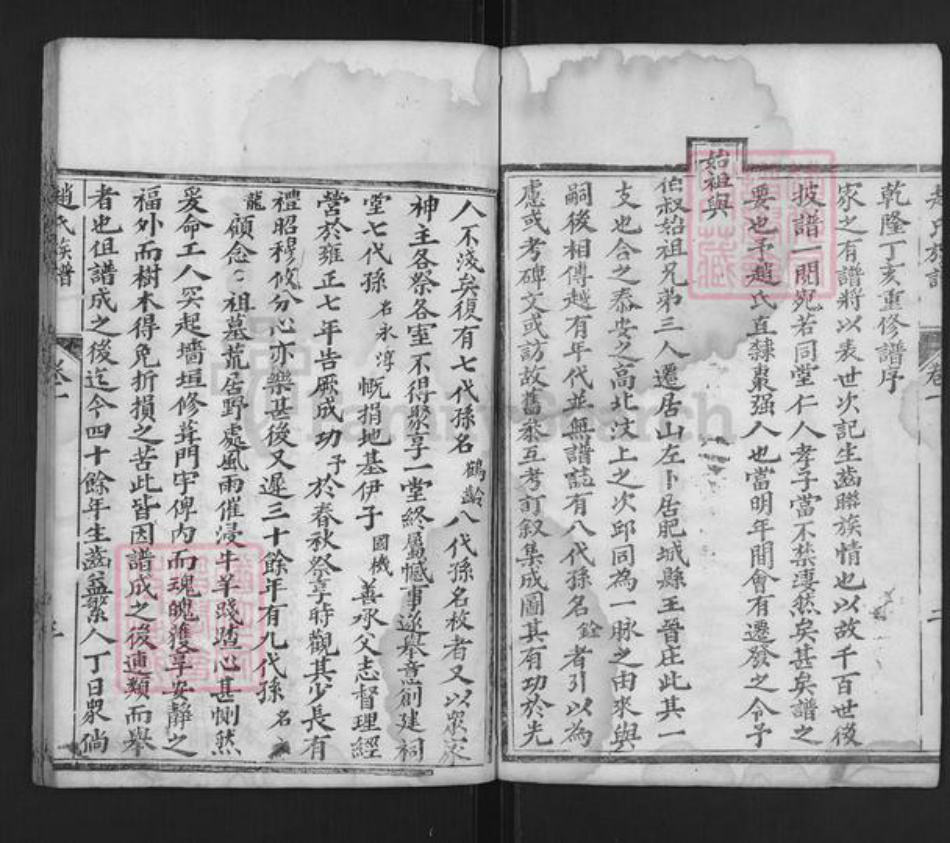 趙氏族譜
卷一
乾隆丁亥重修譜序
家之有譜將以表世次記生齒聯族情也以故千百世後
披譜一閱宛若同堂仁人孝子當不禁悽然矣甚矣譜之
要也予趙氏直隸棗强人也當明年間會有遷發之令予
始祖與
伯叔始祖兄弟三人遷居山左卜居肥城縣王晉庄此其一
支也合之泰安之高北汶上之次邱同為一脉之由來與
嗣後相傳越有年代並無譜誌有八代孫名銓者引以為
慮或考碑文或訪故舊叅互考訂叙集成圖其有功於先
人不淺矣復有七代孫名鶴齡八代孫名枚者又以眾家
神主各祭各室不得聚享一堂終屬憾事遂舉意創建祠
堂七代孫名永淳慨捐地基伊子國機善承父志督理經
營於雍正七年告厥成功予於春秋祭享時觀其少長有
禮昭穆攸分心亦樂甚後又遲三十餘年有九代孫名
龍顧念祖墓荒居野處風雨催浸牛羊踐踏心甚惻然
爰命工人突起墻垣修葺門牢俾内而魂魄獲享安靜之
福外而樹木得免折損之苦此皆因譜成之後連類而舉
者也但譜成之後迄今四十餘年生齒益繁人丁日衆倘
趙氏族譜
卷一
FamilySearch